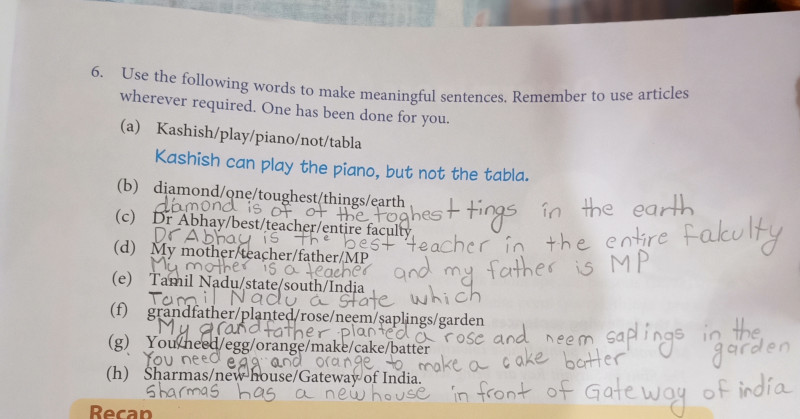 6. Use the following words to make meaningful sentences. Remember to use articles
wherever required. One has been done for you.
(a) Kashish/play/piano/not/tabla
Kashish can play the piano, but not the tabla.
(b) diamond/one/toughest/things/earth
diamond is of of the toghest tings in the earth
(c) Dr Abhay/best/teacher/entire faculty
Dr Abhay is the best teacher in the entire fakulty
(d) My mother/teacher/father/MP
My mother is a teacher and my father is MP
(e) Tamil Nadu/state/south/India
Tamil Nadu a state which
(f) grandfather/planted/rose/neem/saplings/garden
My grandfather planted a rose and neem saplings in the
garden
(g) You/need/egg/orange/make/cake/batter
You need egg and orange to make a cake batter
(h) Sharmas/new house/Gateway of India.
Sharmas has a new house in front of Gateway of india
Recap